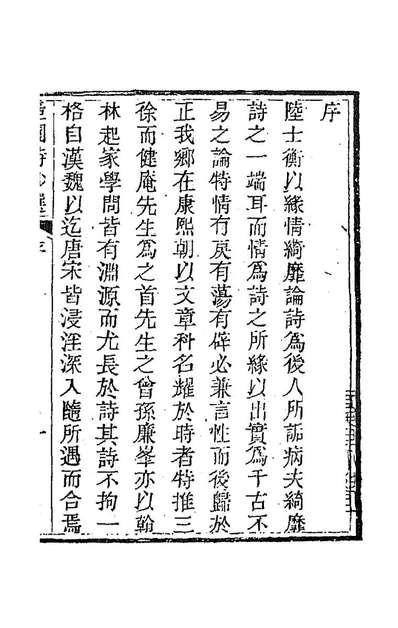 序
陸士衡以緣情綺靡論詩爲後人所詬病夫綺靡
詩之一端耳而情爲詩之所緣以出實爲千古不
易之論特情有戾有蕩有辟必兼言性而後歸於
正我鄉在康熙朝以文章科名耀於時者特推三
徐而健庵先生爲之首先生之曾孫廉峯亦以翰
林起家學問皆有淵源而尤長於詩其詩不拘一
格自漢魏以迄唐宋皆浸淫深入隨所遇而合焉